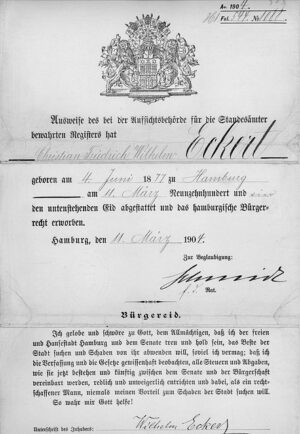 Av. 190
Fol. № 1001
Ausweise des bei der Aufsichtsbehörde für die Standesämter
bewahrten Registers hat
Christian Friedrich Wilhelm Eckert
geboren am 4 Juni 1877 zu Hamburg
am 11. März Neunzehnhundert und
den untenstehenden Eid abgestattet und das hamburgische Bürger-
recht erworben.
Hamburg, den 11 März 1904.
Zur Beglaubigung:
Schmidt
Bürgereid.
Ich gelobe und schwöre zu Gott, dem Allmächtigen, daß ich der freien
und Hansestadt Hamburg und dem Senate treu und hold sein, das Beste der
Stadt suchen und Schaden von ihr abwenden will, soviel ich vermag; daß ich
die Verfassung und die Gesetze gewissenhaft beobachten, alle Steuern und Abgaben,
wie sie jetzt bestehen und künftig zwischen dem Senate und der Bürgerschaft
vereinbart werden, redlich und unweigerlich entrichten und dabei, als ein recht-
schaffener Mann, niemals meinen Vorteil zum Schaden der Stadt suchen will.
So wahr mir Gott helfe!
Unterschrift des Inhabers: Wilhelm Eckert